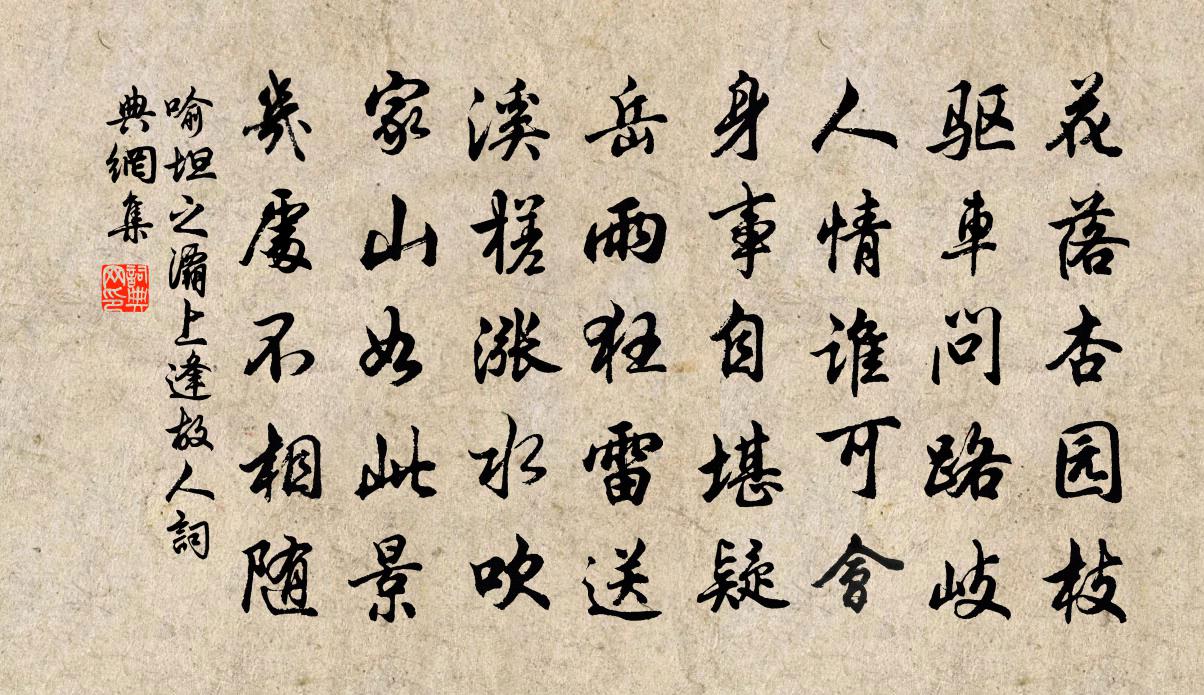 花落杏园枝
驱車问路岐
人情誰可會
身事自堪疑
岳雨狂雷送
溪槎漲水吹
家山如此景
幾處不相随
喻坦之灞上逢故人詞
典網集
詞典网印